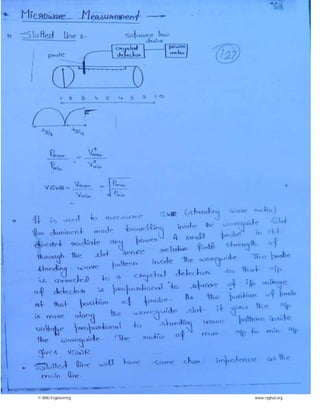 Microwave Measurement
1) Slotted line :-
Square law device
crystal detector
power meter
probe
127
1 2 3 4 5 6 7 8 10
Pmax / Pmin = V²max / V²min
VSWR = Vmax / Vmin = √ Pmax / Pmin
It is used to measure SWR (standing wave ratio)
for dominant mode travelling inside the waveguide. Slot
doesn't radiate any power. A small probe in slot
through the slot sense relative field strength of
standing wave pattern inside the waveguide. The probe
is connected to a crystal detector so that o/p
of detector is proportional to square of i/p voltage
at that position of probe. As the position of probe
is move along the waveguide slot it gives the o/p
voltage proportional to standing wave pattern inside
the waveguide. The ratio of max o/p to min o/p
gives VSWR
Slotted line will have same char. impedance as the
main line
© BBki Engineering
www.raghul.org